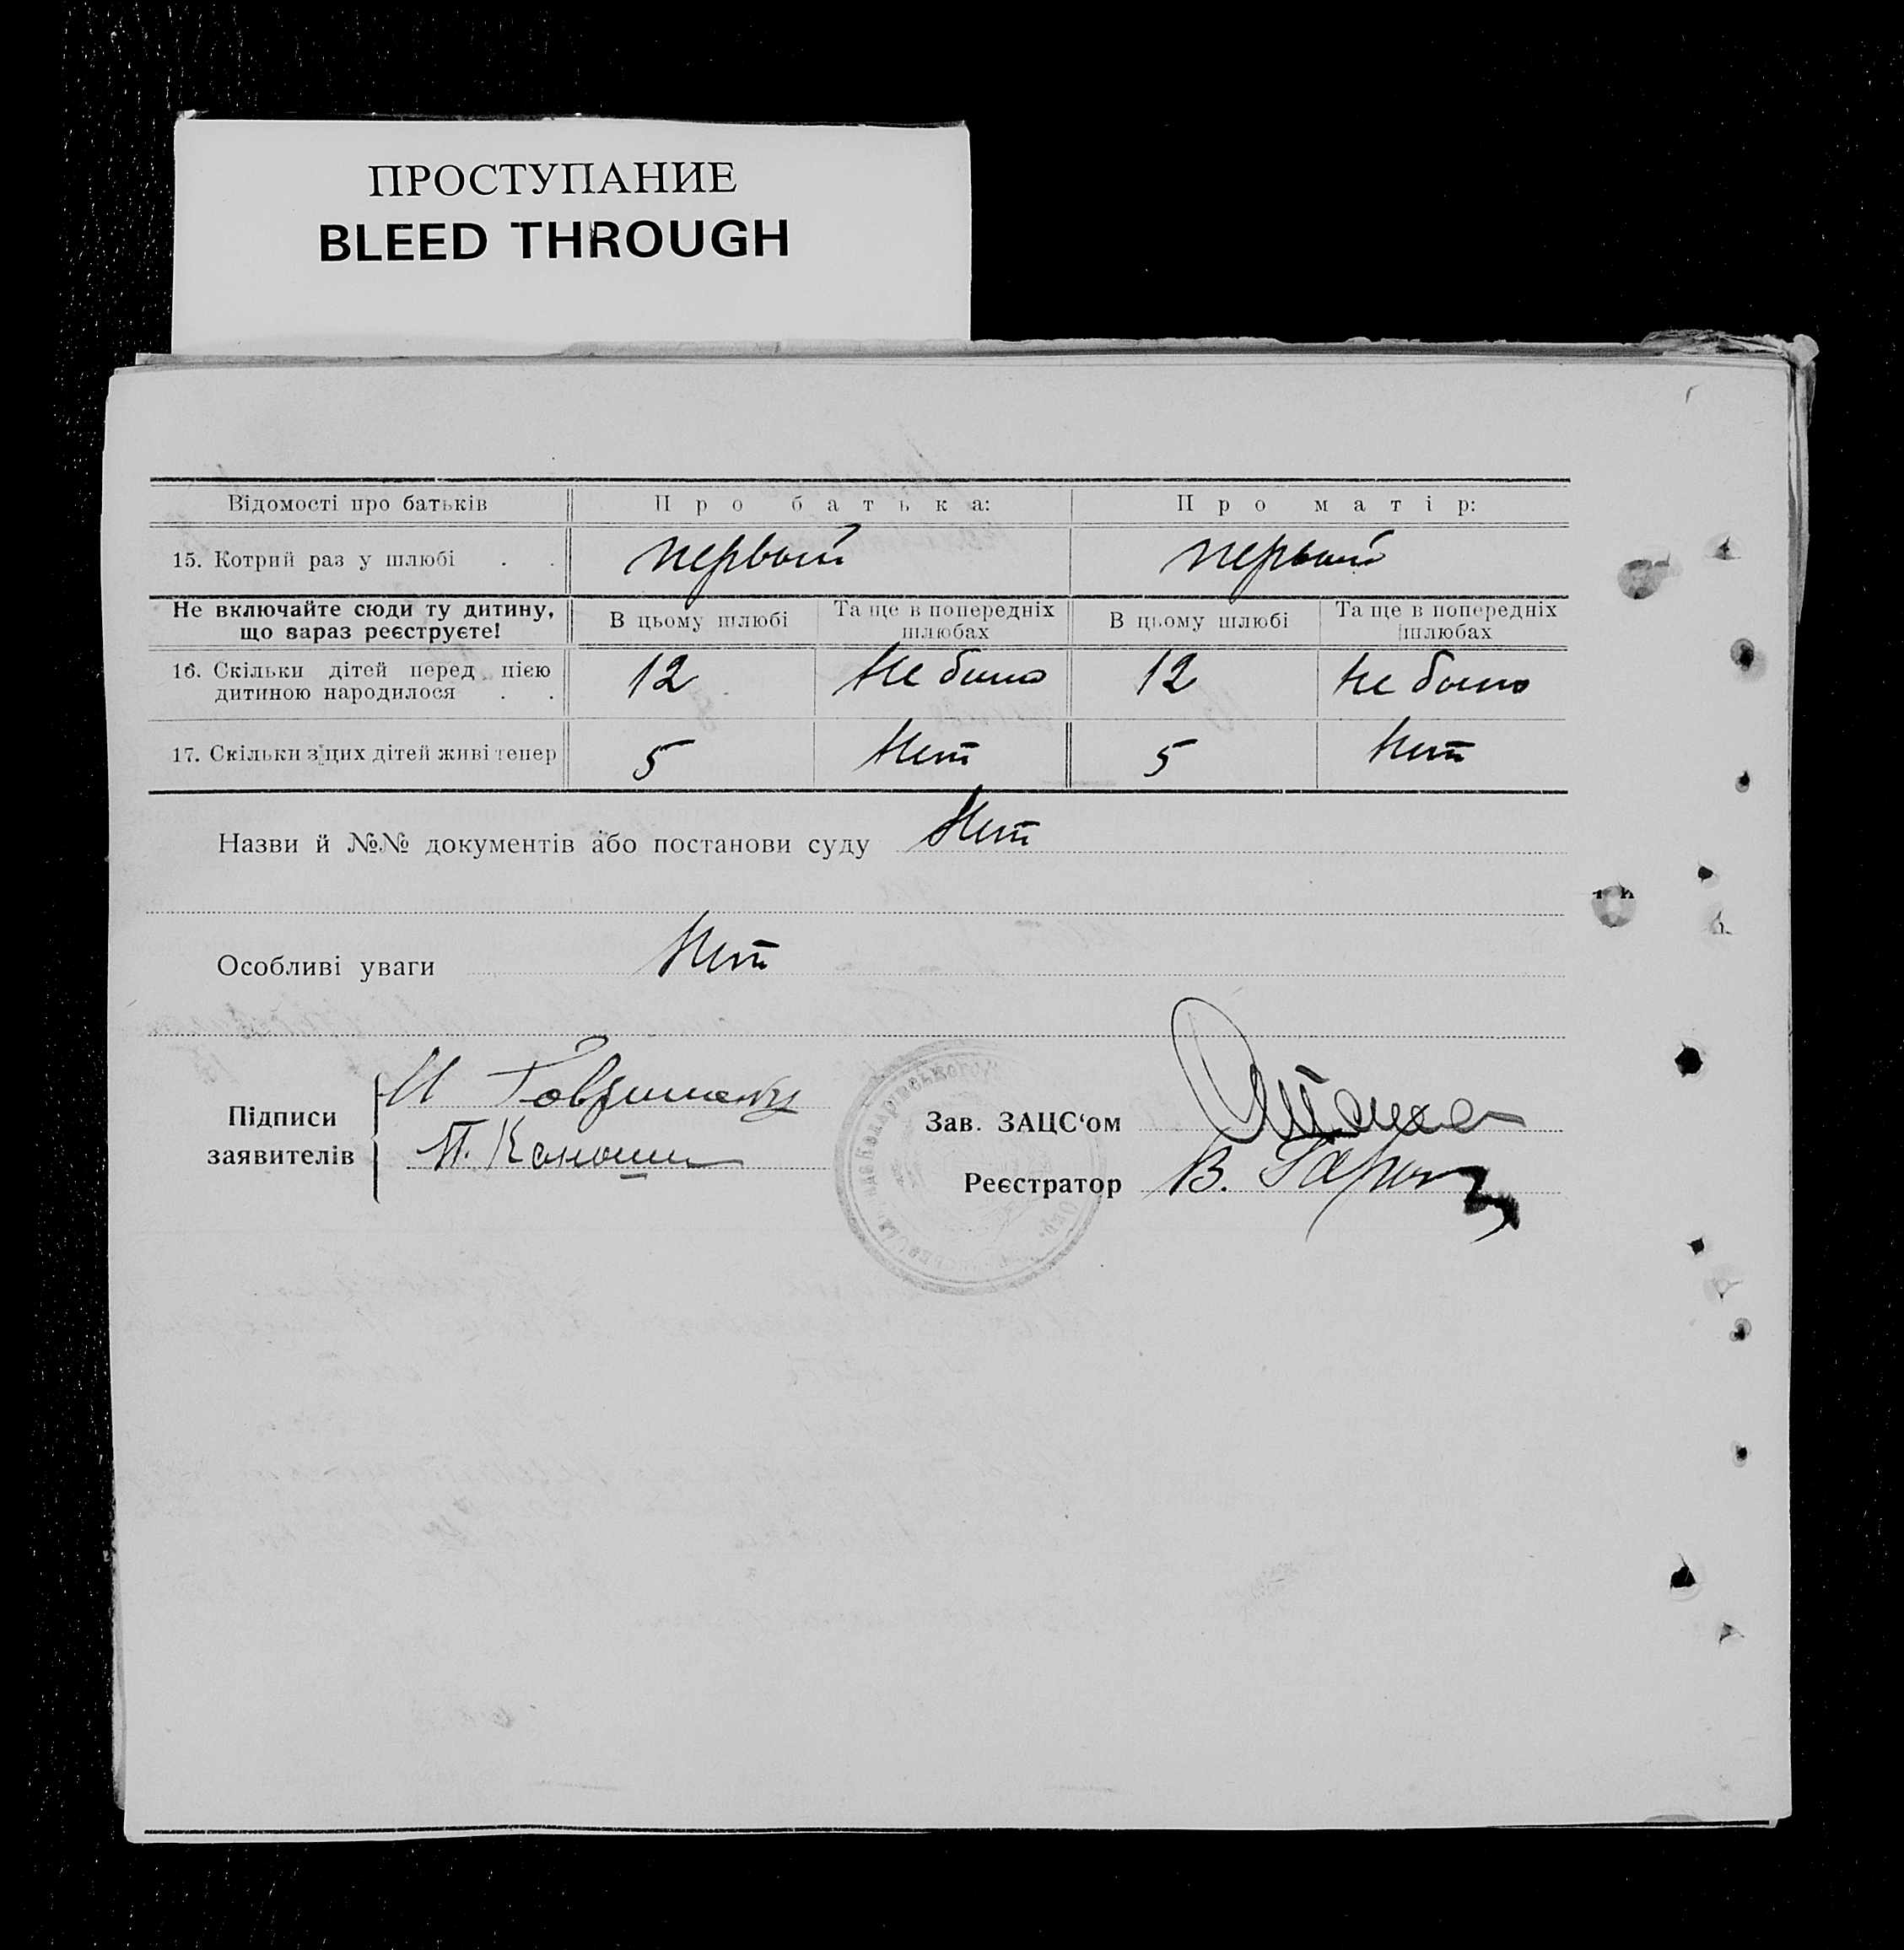 ПРОСТУПАНИЕ
BLEED THROUGH
Відомості про батьків Про батька: Про матір:
15. Котрий раз у шлюбі . . первый первый
Не включайте сюди ту дитину, що зараз реєструєте! В цьому шлюбі Та ще в попередніх шлюбах В цьому шлюбі Та ще в попередніх шлюбах
16. Скільки дітей перед цією дитиною народилося . . 12 не было 12 не было
17. Скільки з цих дітей живі тепер 5 Нет 5 Нет
Назви й №№ документів або постанови суду Нет
Особливі уваги Нет
Підписи заявителів
Зав. ЗАЦС‘ом
Реєстратор В.